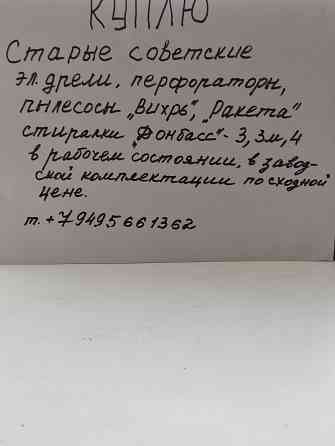 КУПЛЮ
Старые советские
эл. дрели, перфораторы,
пылесосы „Вихрь“, „Ракета“
стиралки „Донбасс“- 3, 3м, 4
в рабочем состоянии, в завод-
ской комплектации по сходной
цене.
т. +79495661362